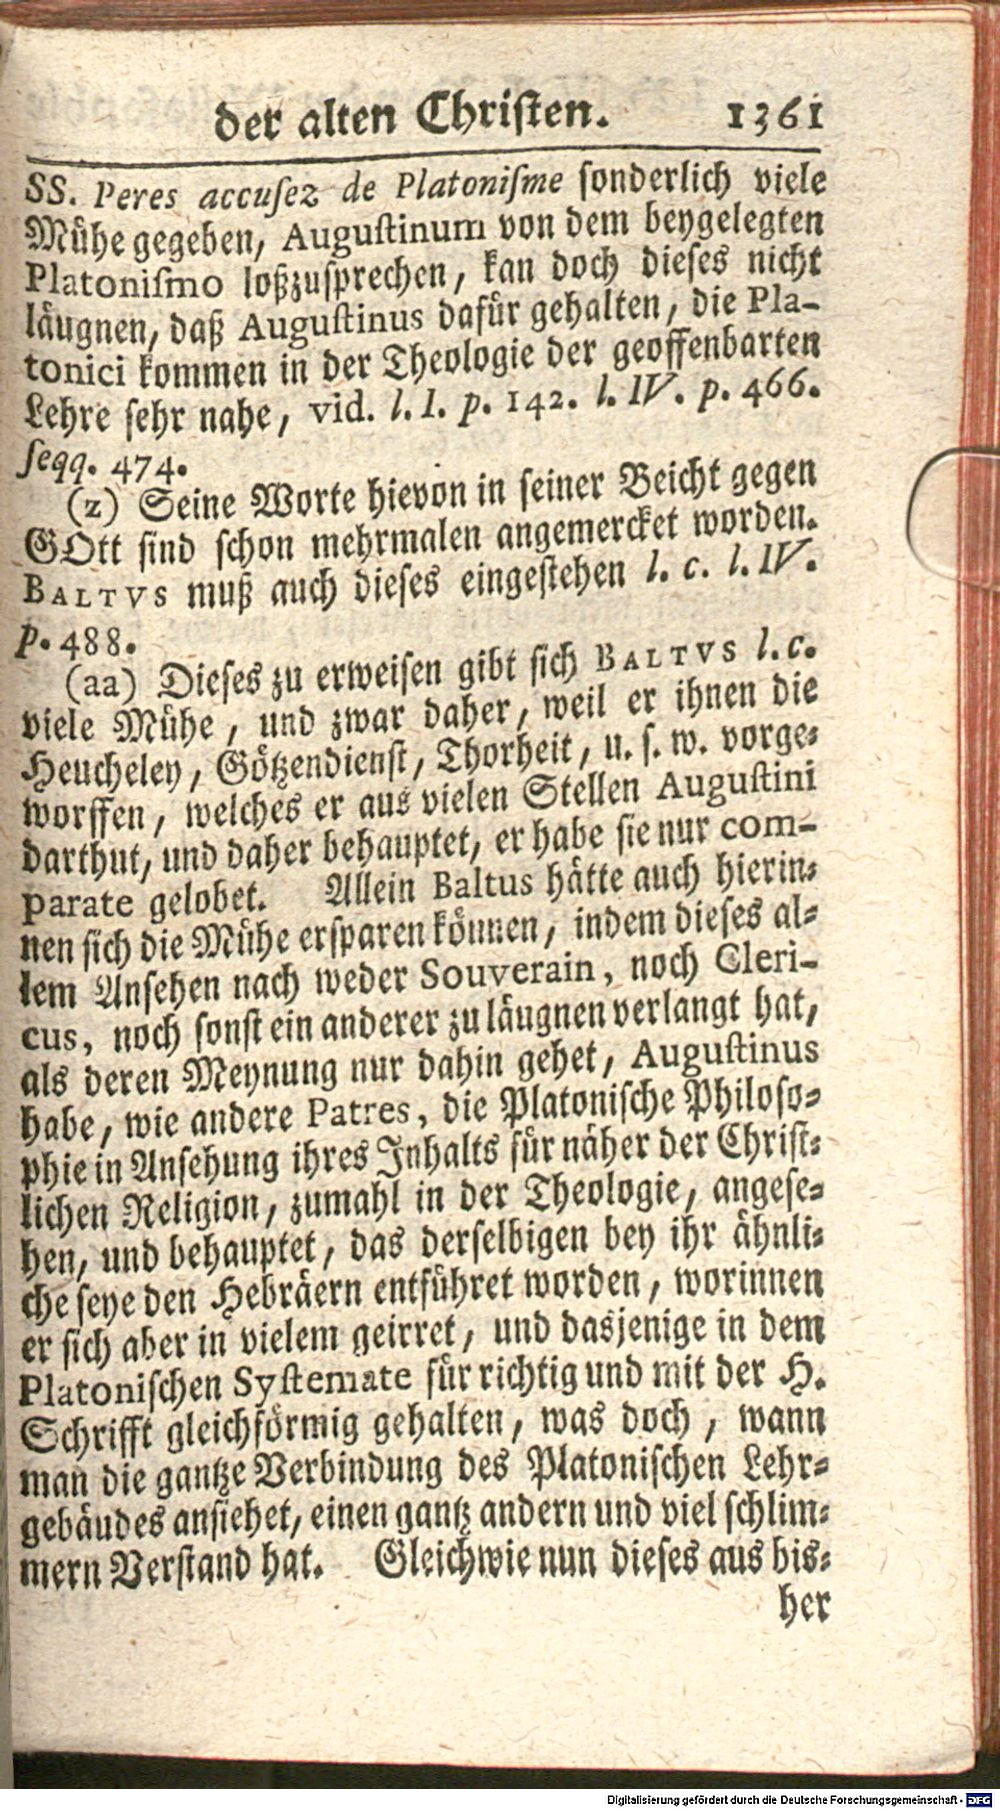 der alten Christen. 1361
SS. Peres accusez de Platonisme sonderlich viele
Mühe gegeben, Augustinum von dem beygelegten
Platonismo loßzusprechen, kan doch dieses nicht
läugnen, daß Augustinus dafür gehalten, die Pla-
tonici kommen in der Theologie der geoffenbarten
Lehre sehr nahe, vid. l. I. p. 142. l. IV. p. 466.
seqq. 474.
(z) Seine Worte hievon in seiner Beicht gegen
GOtt sind schon mehrmalen angemercket worden.
BALTVS muß auch dieses eingestehen l. c. l. IV.
p. 488.
(aa) Dieses zu erweisen gibt sich BALTVS l. c.
viele Mühe, und zwar daher, weil er ihnen die
Heucheley, Götzendienst, Thorheit, u. s. w. vorge-
worffen, welches er aus vielen Stellen Augustini
darthut, und daher behauptet, er habe sie nur com-
parate gelobet. Allein Baltus hätte auch hierin-
nen sich die Mühe ersparen können, indem dieses al-
lem Ansehen nach weder Souverain, noch Cleri-
cus, noch sonst ein anderer zu läugnen verlangt hat,
als deren Meynung nur dahin gehet, Augustinus
habe, wie andere Patres, die Platonische Philoso-
phie in Ansehung ihres Inhalts für näher der Christ-
lichen Religion, zumahl in der Theologie, angese-
hen, und behauptet, das derselbigen bey ihr ähnli-
che seye den Hebräern entführet worden, worinnen
er sich aber in vielem geirret, und dasjenige in dem
Platonischen Systemate für richtig und mit der H.
Schrifft gleichförmig gehalten, was doch, wann
man die gantze Verbindung des Platonischen Lehr-
gebäudes ansiehet, einen gantz andern und viel schlim-
mern Verstand hat. Gleichwie nun dieses aus bis-
her
Digitalisierung gefördert durch die Deutsche Forschungsgemeinschaft - DFG